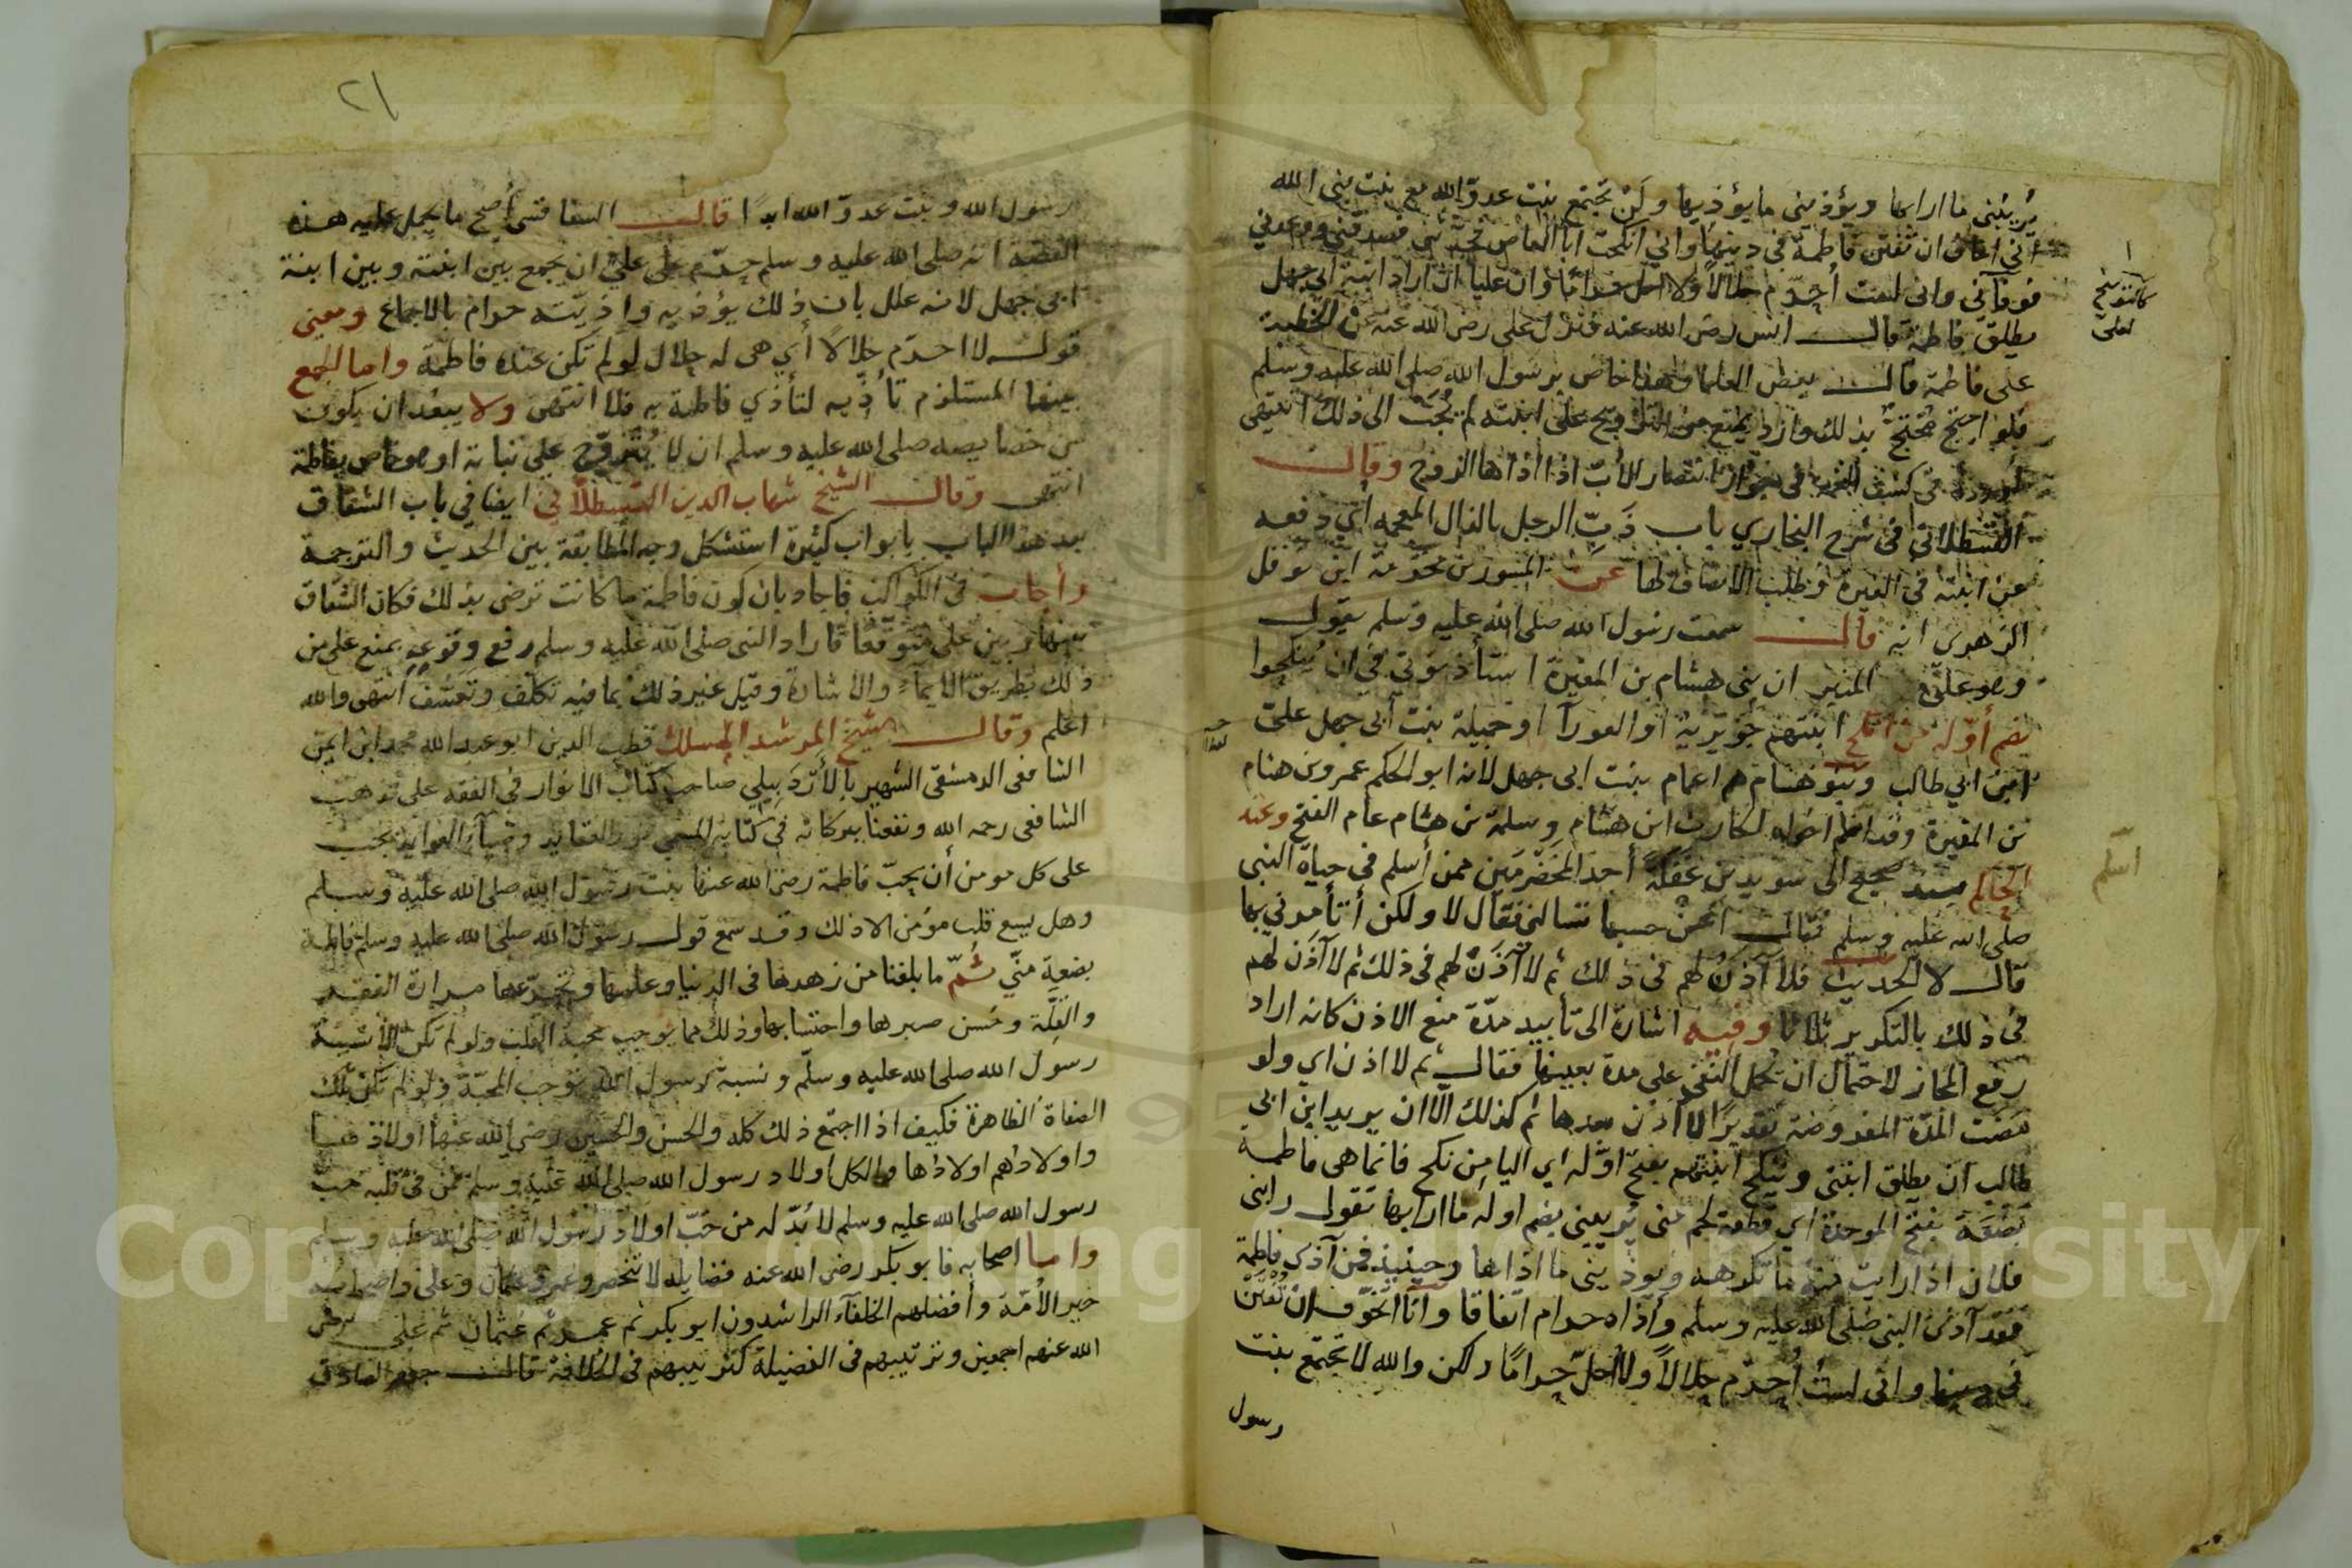 يُريبُني ما ارابها ويؤذيني ما يؤذيها ولن تجتمع بنت عدوّ الله مع بنت نبي الله
اني اخاف ان تفتن فاطمة في دينها واني انكحت ابا العاص فصدقني ووعدني
فوفاني واني لست أُحرّم حلالاً ولا احل حراما وان عليا ان اراد ابنة ابي جهل
يطلق فاطمة قال انس رضى الله عنه فنزل على رضى الله عنه عن الخطبة
على فاطمة قال بعض العلما وهذا خاص برسول الله صلى الله عليه وسلم
فلو احتج محتجّ بذلك واراد يمتنع من التزويج على ابنته لم يُجَب الى ذلك انتهى
في كشف في جواز انتصار الأبّ اذا اذاها الزوج وقال
القسطلاني في شرح البخاري باب ذَبّ الرجل بالذال المعجمه اي دفعه
عن ابنته في الغيرة وطلب الانصاف لها عن المسور بن مخرمة ابن نوفل
الزهرى انه قال سمعت رسول الله صلى الله عليه وسلم يقول
وهو على المنبر ان بنى هشام بن المغيرة استأذنوني في ان يُنكحوا
بضم أوّله من انكح ابنتهم جُوَيرية او العورآ او جميلة بنت أبى جهل عليّ
ابن ابي طالب وبنو هشام هم اعمام بنت ابى جهل لانه ابو الحكم عمرو بن هشام
بن المغيرة وقد اسلم اخواه الحارث ابن هشام وسلمة بن هشام عام الفتح وعند
الحاكم بسند صحيح الى سويد بن غفلة أحد المخضرمين ممن أسلم فى حياة النبى
صلى الله عليه وسلم فقال اعن حسبها تسالنى فقال لا ولكن أتأمرني بها
قال لا الحديث فلا آذَنُ لهم فى ذلك ثم لا آذَنُ لهم فى ذلك ثم لا آذَن لهم
فى ذلك بالتكرير ثلاثا وفيه اشارة الى تأبيد مدّة منع الاذن كانه اراد
رفع المجاز لاحتمال ان يُحمل النفى على مدة بعينها فقال ثم لا اذن اي ولو
مضت المدّة المفروضة تقديرًا لا اذن بعدها ثم كذلك الّا ان يريد ابن ابى
طالب ان يطلق ابنتى وينكح ابنتهم بفتح اوّله اي اليا من نكح فانما هى فاطمة
بَضْعَة بفتح الموحدة اي قطعة لحم منى يُريبني بضم اوله ما ارابها تقول رابنى
فلان اذا رايت منه ما تكرهه ويؤذينى ما اذاها وحينيذ فمن آذى فاطمة
فقد آذى النبى صلى الله عليه وسلم وأذاه حرام اتفاقا وانا اتخوّف ان تُفتَن
فى دينها وانى لستُ أُحرّم حلالاً ولا أُحلّ حرامًا ولكن والله لا تجتمع بنت
رسول
اسلم
٢١
رسول الله وبنت عدوّ الله ابدًا قال السفاقسى أصح ما يحمل عليه هذه
القصة انه صلى الله عليه وسلم حرّم على عليّ ان يجمع بين ابنته وبين ابنة
ابى جهل لانه علل بان ذلك يؤذيه واذيته حرام بالاجماع ومعنى
قوله لا احرّم حلالًا أي هى له حلال لو لم تكن عنده فاطمة واما الجمع
بينهما المستلزم تأذّيه لتأذي فاطمة به فلا انتهى ولا يبعُد ان يكون
من خصايصه صلى الله عليه وسلم ان لا يُتزوّج على بناته او هو خاص بفاطمة
انتهى وقال الشيخ شهاب الدين القسطلاّني ايضا في باب الشقاق
بعد هذا الباب بابواب كثيرة استشكل وجه المطابقة بين الحديث والترجمة
وأجاب فى الكواكب فاجاد بان كون فاطمة ما كانت ترضى بذلك فكان الشقاق
بينها وبين على متوقعًا فاراد النبى صلى الله عليه وسلم رفع وقوعه بمنع على من
ذلك بطريق الايماء والاشارة وقيل غير ذلك مما فيه تكلف وتعسّف انتهى والله
اعلم وقال الشيخ المرشد المسلك قطب الدين ابو عبد الله محمد ابن ايمن
الشافعى الدمشقى الشهير بالأردَبيلي صاحب كتاب الانوار فى الفقه على مذهب
الشافعى رحمه الله ونفعنا ببركاته فى كتابه المسمى العقايد وضياء الفوايد يجب
على كل مومن أن يحبّ فاطمة رضى الله عنها بنت رسول الله صلى الله عليه وسلم
وهل يسع قلب مؤمن الا ذلك وقد سمع قول رسول الله صلى الله عليه وسلم فاطمة
بضعة منّي ثمّ ما بلغنا من زهدها فى الدنيا وعلمها وتجرّعها مرارة الفقر
والقلّة وحُسن صبرها واحتسابها وذلك مما يوجب محبة القلب ولو لم تكن الا نسبة
رسول الله صلى الله عليه وسلّم ونسبة رسول الله توجب المحبّة ولو لم تكن تلك
الصفاة الظاهرة فكيف اذا اجتمع ذلك كله والحسن والحسين رضى الله عنهما اولاد
واولادهم اولادها والكل اولاد رسول الله صلى الله عليه وسلم فمن فى قلبه حبّ
رسول الله صلى الله عليه وسلم لا بُدّ له من حُبّ اولاد رسول الله صلى الله عليه وسلم
واما اصحابه فابو بكر رضى الله عنه فضايله لا تنحصر وعمر وعثمان وعلى واصحابه
خير الأمّة وأفضلهم الخلفآء الراشدون ابو بكر ثم عمر ثم عثمان ثم على رضى
الله عنهم اجمعين وترتيبهم فى الفضيلة كترتيبهم فى الخلافة قال جعفر الصادق
Copyright © King Saud University